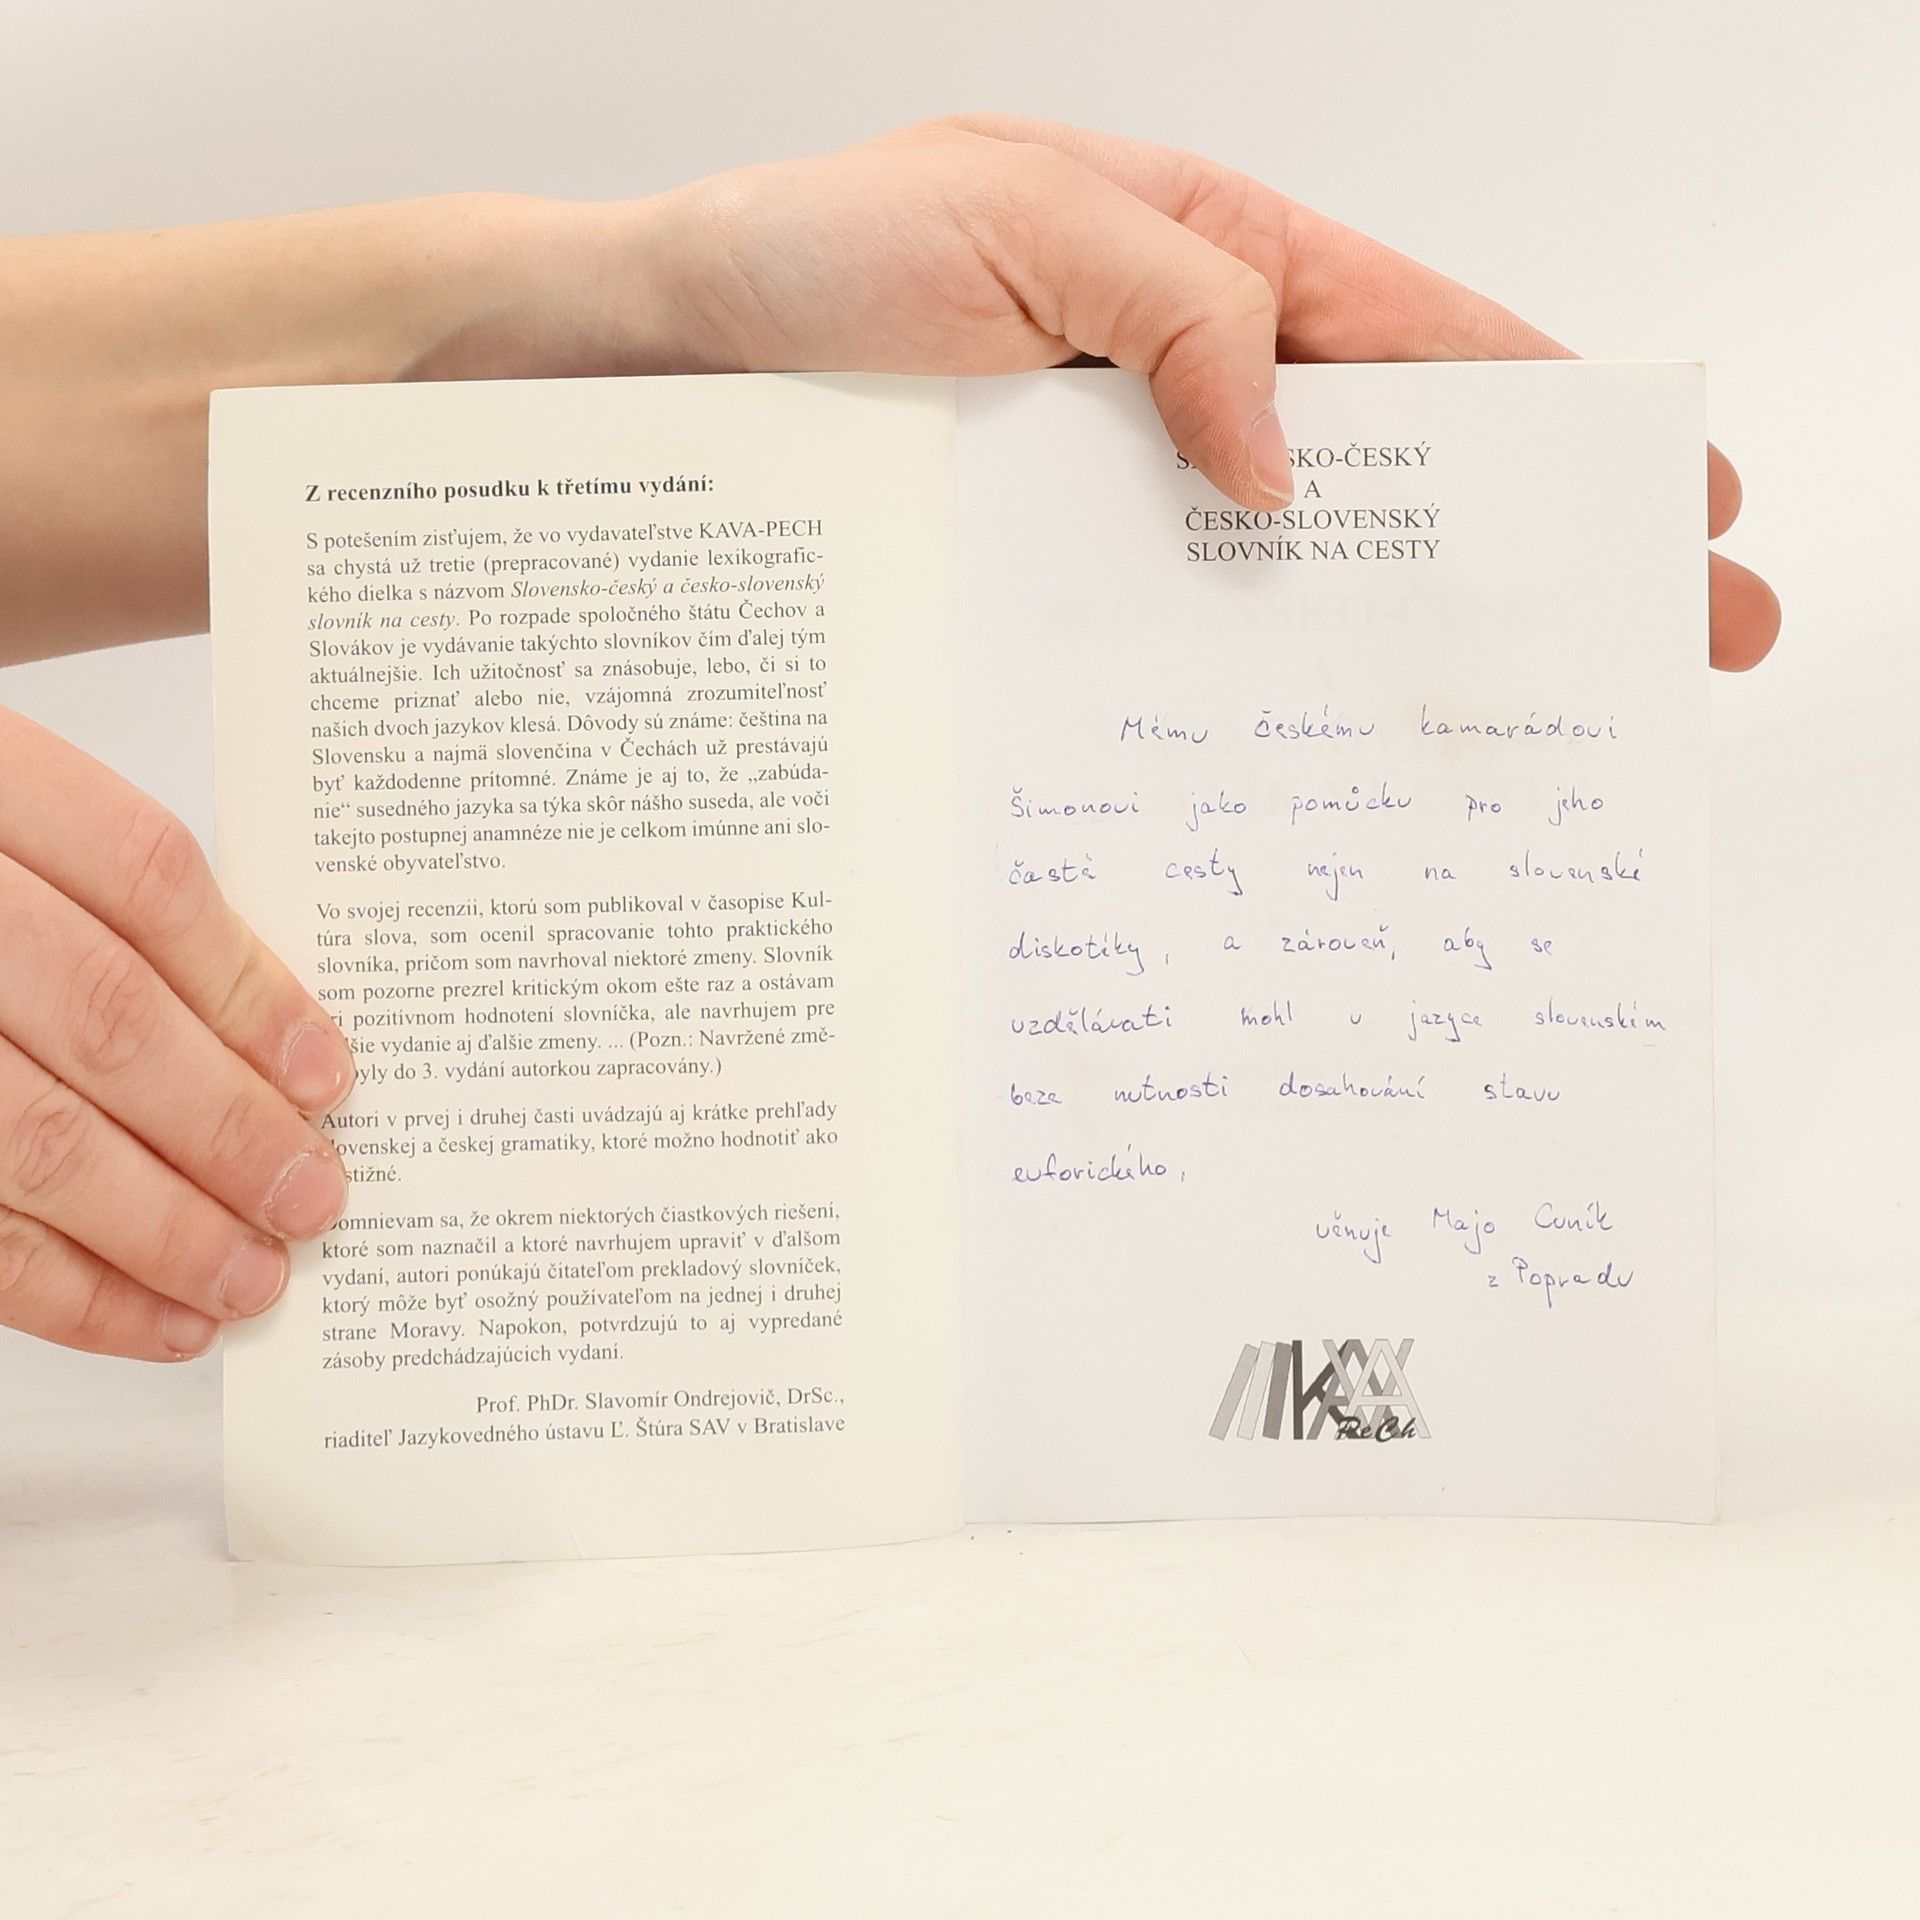 Z recenzního posudku k třetímu vydání:
S potešením zisťujem, že vo vydavateľstve KAVA-PECH
sa chystá už tretie (prepracované) vydanie lexikografic-
kého dielka s názvom Slovensko-český a česko-slovenský
slovník na cesty. Po rozpade spoločného štátu Čechov a
Slovákov je vydávanie takýchto slovníkov čím ďalej tým
aktuálnejšie. Ich užitočnosť sa znásobuje, lebo, či si to
chceme priznať alebo nie, vzájomná zrozumiteľnosť
našich dvoch jazykov klesá. Dôvody sú známe: čeština na
Slovensku a najmä slovenčina v Čechách už prestávajú
byť každodenne prítomné. Známe je aj to, že „zabúda-
nie“ susedného jazyka sa týka skôr nášho suseda, ale voči
takejto postupnej anamnéze nie je celkom imúnne ani slo-
venské obyvateľstvo.
Vo svojej recenzii, ktorú som publikoval v časopise Kul-
túra slova, som ocenil spracovanie tohto praktického
slovníka, pričom som navrhoval niektoré zmeny. Slovník
som pozorne prezrel kritickým okom ešte raz a ostávam
pozitívnom hodnotení slovníčka, ale navrhujem pre
vydanie aj ďalšie zmeny. ... (Pozn.: Navržené změ-
byly do 3. vydání autorkou zapracovány.)
Autori v prvej i druhej časti uvádzajú aj krátke prehľady
slovenskej a českej gramatiky, ktoré možno hodnotiť ako
stižné.
Domnievam sa, že okrem niektorých čiastkových riešení,
ktoré som naznačil a ktoré navrhujem upraviť v ďalšom
vydaní, autori ponúkajú čitateľom prekladový slovníček,
ktorý môže byť osožný používateľom na jednej i druhej
strane Moravy. Napokon, potvrdzujú to aj vypredané
zásoby predchádzajúcich vydaní.
Prof. PhDr. Slavomír Ondrejovič, DrSc.,
riaditeľ Jazykovedného ústavu Ľ. Štúra SAV v Bratislave
SKO-ČESKÝ
A
ČESKO-SLOVENSKÝ
SLOVNÍK NA CESTY
Mému českému kamarádovi
Šimonovi jako pomůcku pro jeho
časté cesty nejen na slovenské
diskotéky, a zároveň, aby se
vzdělávati mohl v jazyce slovenském
beze nutnosti dosahování stavu
euforického,
věnuje Majo Cuník
z Popradu
KAVA
PeCh